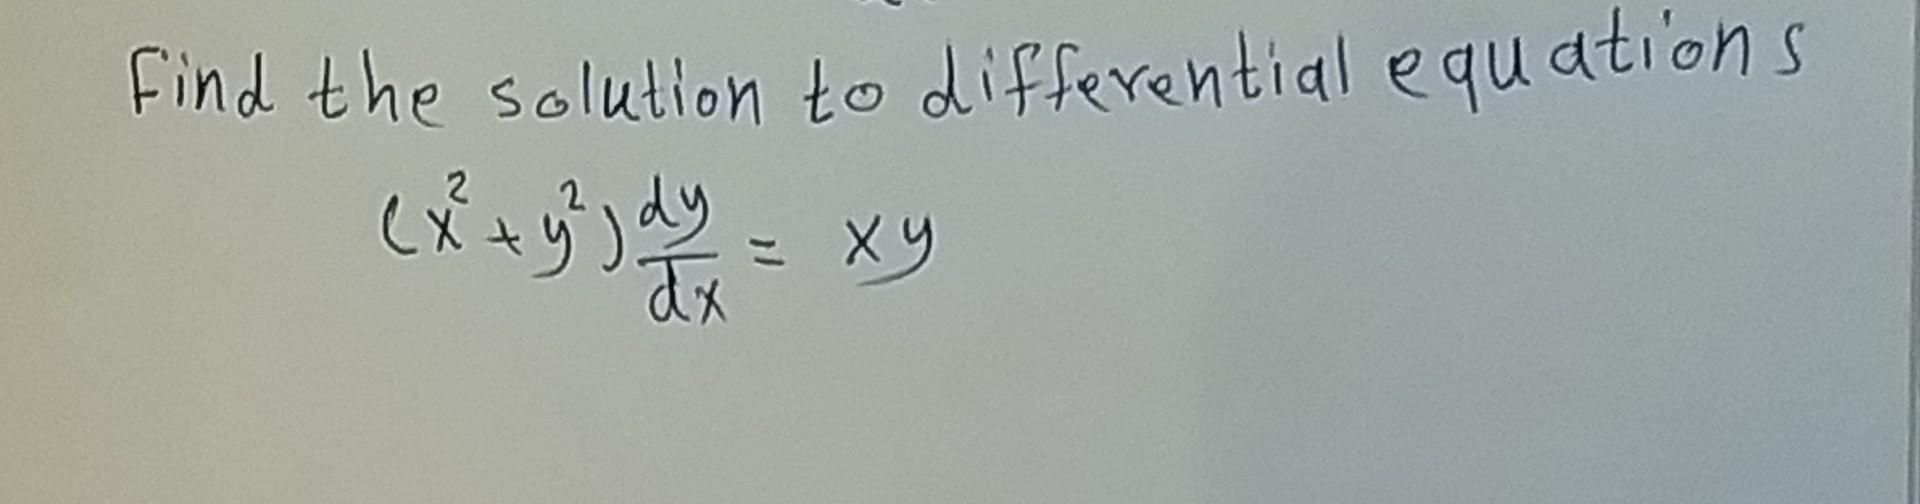 Find the solution to differential equations
(x² + y²) dy/dx = xy